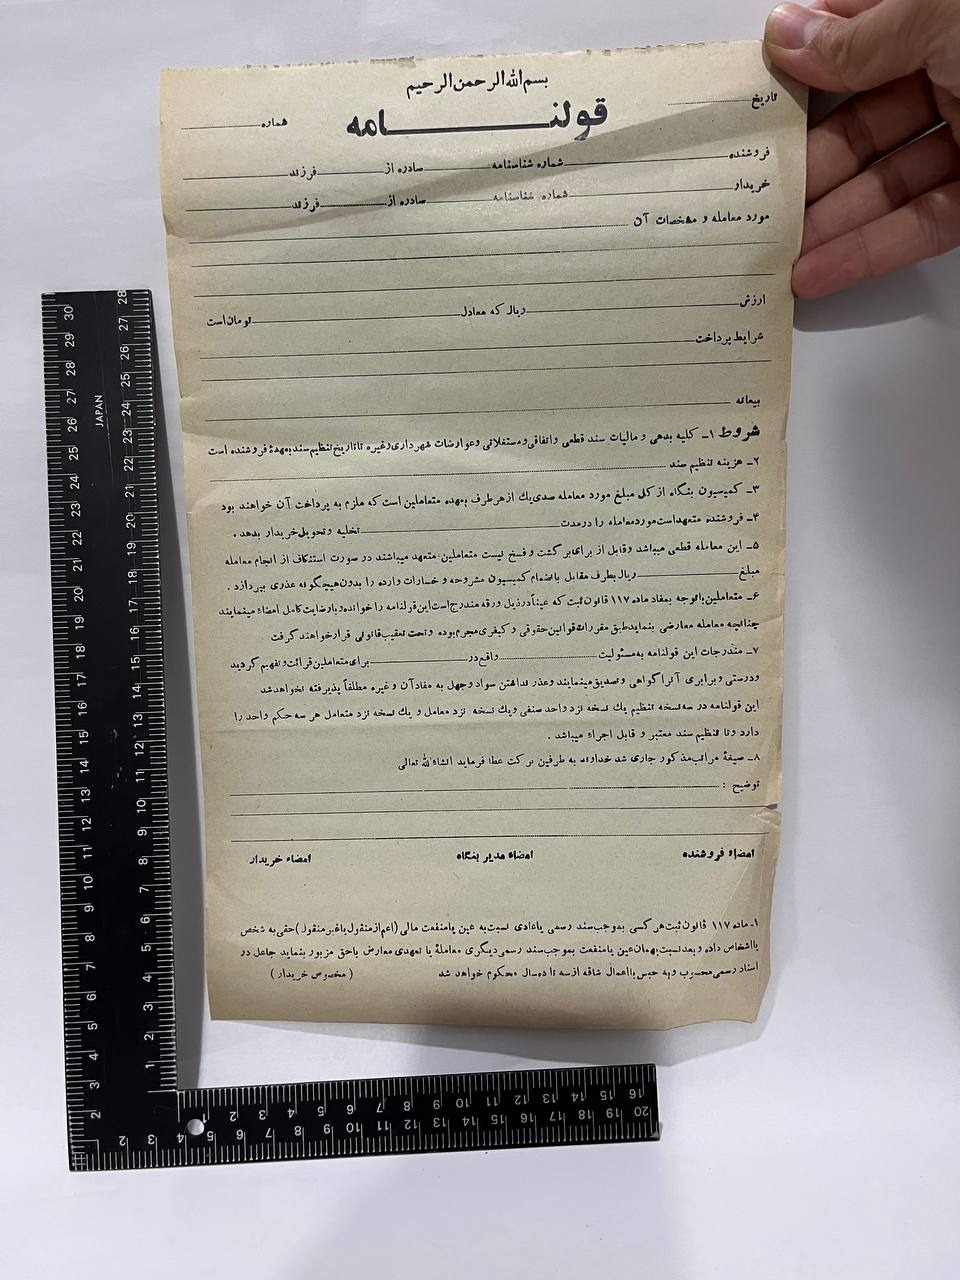 بسم الله الرحمن الرحيم
تاريخ
قولنــــــــامه
شماره
فروشنده شماره شناسنامه صادره از فرزند
خريدار شماره شناسنامه صادره از فرزند
مورد معامله و مشخصات آن
ارزش ريال که معادل تومان است
شرايط پرداخت
بيعانه
شروط ۱ـ کليه بدهی و ماليات سند قطعی و اتفاقی و مستغلاتی و عوارضات شهرداری وغيره تا تاريخ تنظيم سند بعهدۀ فروشنده است
۲ـ هزينه تنظيم سند
۳ـ کميسيون بنگاه از کل مبلغ مورد معامله صدی يك از هر طرف بعهده متعاملين است که ملزم به پرداخت آن خواهند بود
۴ـ فروشنده متعهد است مورد معامله را در مدت تخليه و تحويل خريدار بدهد .
۵ـ اين معامله قطعی ميباشد وقابل از برای برگشت و فسخ نيست متعاملين متعهد ميباشند در صورت استنکاف از انجام معامله
مبلغ ريال بطرف مقابل بانضمام کميسيون مشروحه و خسارات وارده را بدون هيچگونه عذری بپردازد .
۶ـ متعاملين باتوجه بمفاد ماده ۱۱۷ قانون ثبت که عيناً در ذيل ورقه مندرج است اين قولنامه را خوانده و با رضايت کامل امضاء مينمايند
چنانچه معامله معارضی بنمايد طبق مقررات قوانين حقوقی و کيفری مجرم بوده و تحت تعقيب قانونی قرار خواهند گرفت
۷ـ مندرجات اين قولنامه به مسئوليت واقع در برای متعاملين قرائت و تفهيم گرديد
ودرستی و برابری آنرا گواهی و تصديق مينمايند وعذر نداشتن سواد وجهل به مفاد آن و غيره مطلقاً پذيرفته نخواهد شد
اين قولنامه در سه نسخه تنظيم يك نسخه نزد واحد صنفی ويك نسخه نزد معامل و يك نسخه نزد متعامل هر سه حکم واحد را
دارد وتا تنظيم سند معتبر و قابل اجراء ميباشد .
۸ـ صيغۀ مراتب مذکور جاری شد خداوند به طرفين برکت عطا فرمايد انشاءالله تعالی
توضيح :
امضاء فروشنده امضاء مدير بنگاه امضاء خريدار
۱ـ ماده ۱۱۷ قانون ثبت هر کسی بموجب سند رسمی ياعادی نسبت به عين يا منفعت مالی (اعم از منقول ياغير منقول) حقی به شخص
يا اشخاص داده و بعد نسبت بهمان عين يا منفعت بموجب سند رسمی ديگری معاملۀ يا تعهدی معارض باحق مزبور بنمايد جاعل در
اسناد رسمی محسوب و به حبس بااعمال شاقه از سه تا ده سال محکوم خواهد شد ( مخصوص خريدار )
JAPAN